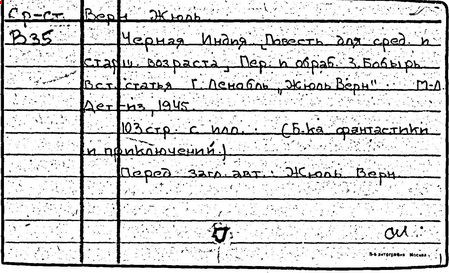 Ср-ст. Верн Жюль
В35 Черная Индия. Повесть для сред. и
старш. возраста. Пер. и обраб. З. Бобырь
Вст. статья Г. Ленобль "Жюль Верн". М-Л
Дет-из, 1945
103 стр. с илл. (Б-ка фантастики
и приключений.)
Перед загл. авт.: Жюль Верн